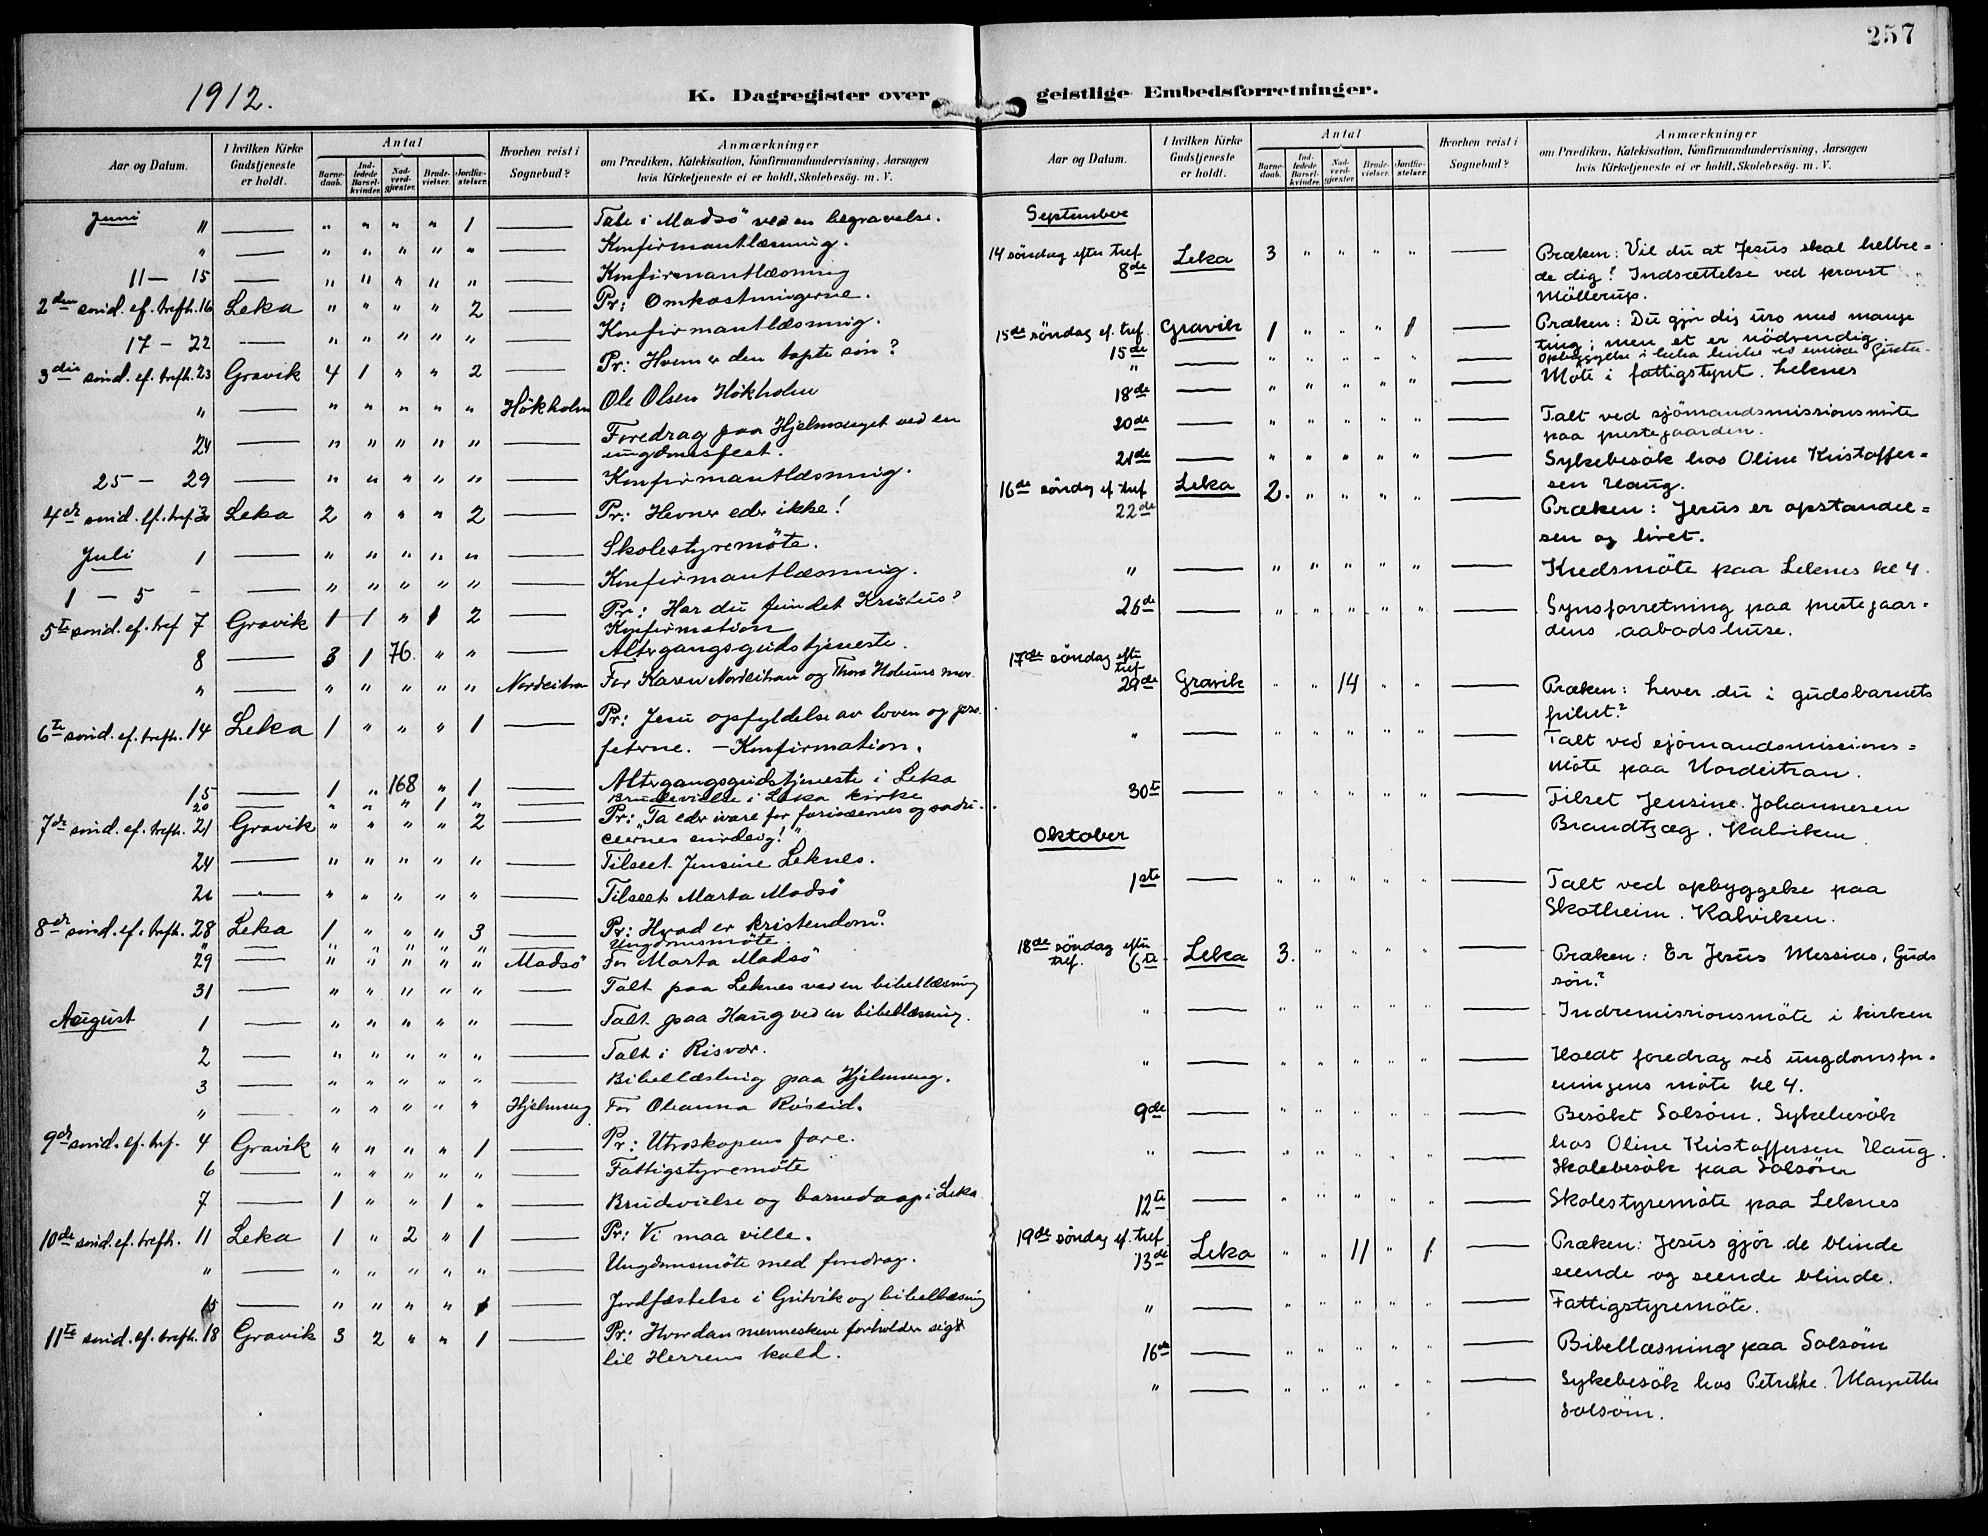 257
1912.
K. Dagregister over geistlige Embedsforretninger.
Aar og Datum. I hvilken Kirke Gudstjeneste er holdt. Antal Barnedaab. Indledede Barselkvinder. Nadverdgjæster. Brudevielser. Jordfæstelser. Hvorhen reist i Sognebud? Anmærkninger om Prædiken, Katekisation, Konfirmandundervisning, Aarsagen hvis Kirketjeneste ei er holdt, Skolebesøg. m. V.
Juni
" — " " " " 1 — Tale i Madsö ved en begravelse.
" — " " " " " — Konfirmantlæsning.
11 – 15 — " " " " " — Konfirmantlæsning
2den sønd. ef. trefh. 16 Leka " " " " 2 — Pr: Omkostningerne.
17 – 22 — " " " " " — Konfirmantlæsning.
3die sønd. ef. trefh. 23 Gravik 4 1 " " 2 — Pr: Hvem er den tapte søn?
" — " " " " " Hökholm Ole Olsen Hökholm
24 — " " " " " — Foredrag paa Hjelmsenget ved en
ungdomsfest.
25 – 29 — " " " " " — Konfirmantlæsning.
4de sønd. ef. tref. 30 Leka 2 " " " 2 — Pr: Hevner eder ikke!
Juli 1 — " " " " " — Skolestyremöte.
1 – 5 — " " " " " — Konfirmantlæsning.
5te sønd. ef. tref 7 Gravik 1 1 " 1 2 — Pr: Har du fundet Kristus?
Konfirmation
8 — 3 1 76 " " Altergangsgudstjeneste.
" — " " " " " Nordeitran For Karen Nordeitran og Thora Holmns mor.
6te sønd. ef. trefh. 14 Leka 1 " " " 1 — Pr: Jesu opfyldelse av loven og pro-
feterne. – Konfirmation.
15 — 1 " 168 " 1 — Altergangsgudstjeneste i Leka
20 — " " " 1 " — Brudevielse i Leka kirke
7de sønd. ef. trefh. 21 Gravik " " " " 2 — Pr: "Ta eder ivare for farisæernes og saddu-
cæernes surdeig!"
24 — " " " " " — Tilseet Jensine Leknes.
26 — " " " " " — Tilseet Marta Madsö
8de sønd. ef. trefh. 28 Leka 1 " " " 3 — Pr: Hvad er kristendom?
" — " " " " " — Ungdomsmöte.
29 — " " " " " Madsö For Marta Madsö
31 — " " " " " — Talt paa Leknes ved en bibellæsning
August 1 — " " " " " — Talt paa Haug ved en bibellæsning.
2 — " " " " " — Talt i Risvær.
3 — " " " " " — Bibellæsning paa Hjelmseng.
" — " " " " " Hjelmseng For Oleanna Rössid.
9de sønd. ef. tref. 4 Gravik " " " " 1 — Pr: Utroskapens fare.
6 — " " " " " — Fattigstyremöte
7 — 1 " " 1 " — Brudevielse og barnedaap i Leka
10de sønd. ef. trefh. 11 Leka 1 " 2 " 1 — Pr: Vi maa ville.
" — " " " " " — Ungdomsmöte med foredrag.
15 — " " " " 1 — Jordfæstelse i Gutvik og bibellæsning
11te sønd. ef. trefh. 18 Gravik 3 2 " " 1 — Pr: Hvordan menneskene forholder sig
til Herrens kald.
Aar og Datum. I hvilken Kirke Gudstjeneste er holdt. Antal Barnedaab. Indledede Barselkvinder. Nadverdgjæster. Brudevielser. Jordfæstelser. Hvorhen reist i Sognebud? Anmærkninger om Prædiken, Katekisation, Konfirmandundervisning, Aarsagen hvis Kirketjeneste ei er holdt. Skolebesög. m. V.
September
14 söndag efter tref 8de Leka 3 " " " " — Præken: Vil du at Jesus skal helbre=
de dig? Indsættelse ved provst
Möllerup.
15de söndag ef. tref. 15de Gravik 1 " " " 1 — Præken: Du gjör dig uro med mange
ting; men et er nödvendig.
" — " " " " " — Opbyggelse i Leka kirke ved emissær
18de — " " " " " — Möte i fattigstyret. Leknes
20de — " " " " " Talt ved sjömandsmissionsmöte
paa prestegaarden.
21de — " " " " " — Sykebesök hos Oline Kristoffer=
sen Haug.
16de söndag ef tref 22de Leka 2. " " " " — Præken: Jesus er opstandel=
sen og livet.
" — " " " " " — Kredsmöte paa Leknes kl 4.
26de — " " " " " — Synsforretning paa prestegaar=
dens aabodshuse.
17de söndag efter tref 29de Gravik " " 14 " " — Præken: Lever du i gudsbarnets
frihet?
" — " " " " " — Talt ved sjömandsmissions=
möte paa Nordeitran.
30te — " " " " " — Tilset Jensine Johannesen
Brandtzæg. Kalviken
Oktober
1ste — " " " " " — Talt ved opbyggelse paa
Skotheim. Kalviken.
18de söndag efter tref. 6te Leka 3. " " " " — Præken: Er Jesus Messias, Guds
sön?
" — " " " " " — Indremissionsmöte i kirken
" — " " " " " — Holdt foredrag ved ungdomsfor=
eningens möte kl 4.
9de — " " " " " — Besökt Solsöm. Sykebesök
hos Oline Kristoffersen Haug.
" — " " " " " — Skolebesök paa Solsöm
12te — " " " " " — Skolestyremöte paa Leknes
19de söndag ef. tref. 13de Leka " " 11 " 1 — Præken: Jesus gjör de blinde
seende og seende blinde.
" — " " " " " — Fattigstyremöte.
16de — " " " " " — Bibellæsning paa Solsöm
" — " " " " " — Sykebesök hos Petrikke Margrethe
Solsöm.